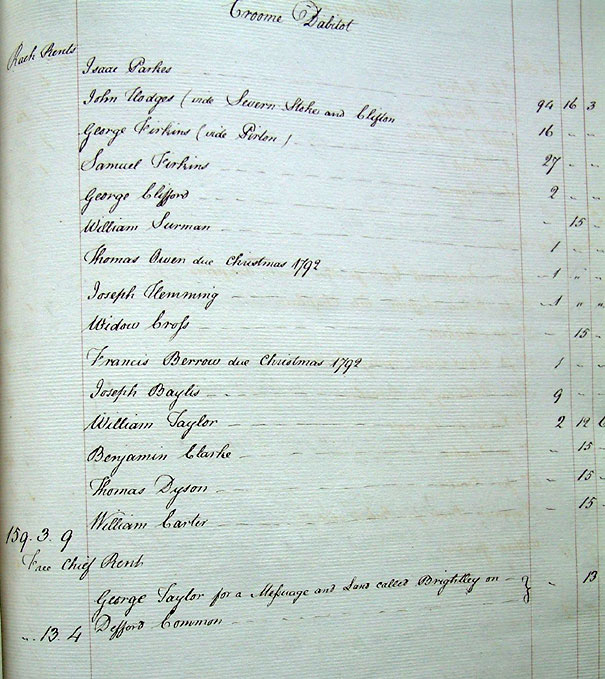 Croome Dabitot
Rack Rents
Isaac Parkes 94 16 3
John Hodges (vide Severn Stoke and Clifton 16 - -
George Firkins (vide Pirton) 27 - -
Samuel Firkins 2 - -
George Clifford - 15 -
William Surman 1 - -
Thomas Owen due Christmas 1792 1 " "
Joseph Hemming 1 " "
Widow Croſs - 15 -
Francis Berrow due Christmas 1792 1 - -
Joseph Baylis 9 - -
William Taylor 2 12 6
Benjamin Clarke - 15 -
Thomas Dyson - 15 -
William Carter - 15
159.3.9
Free Chief Rent
George Taylor for a Meſsuage and Land called Brightley on } - 13
„.13.4 Defford Common